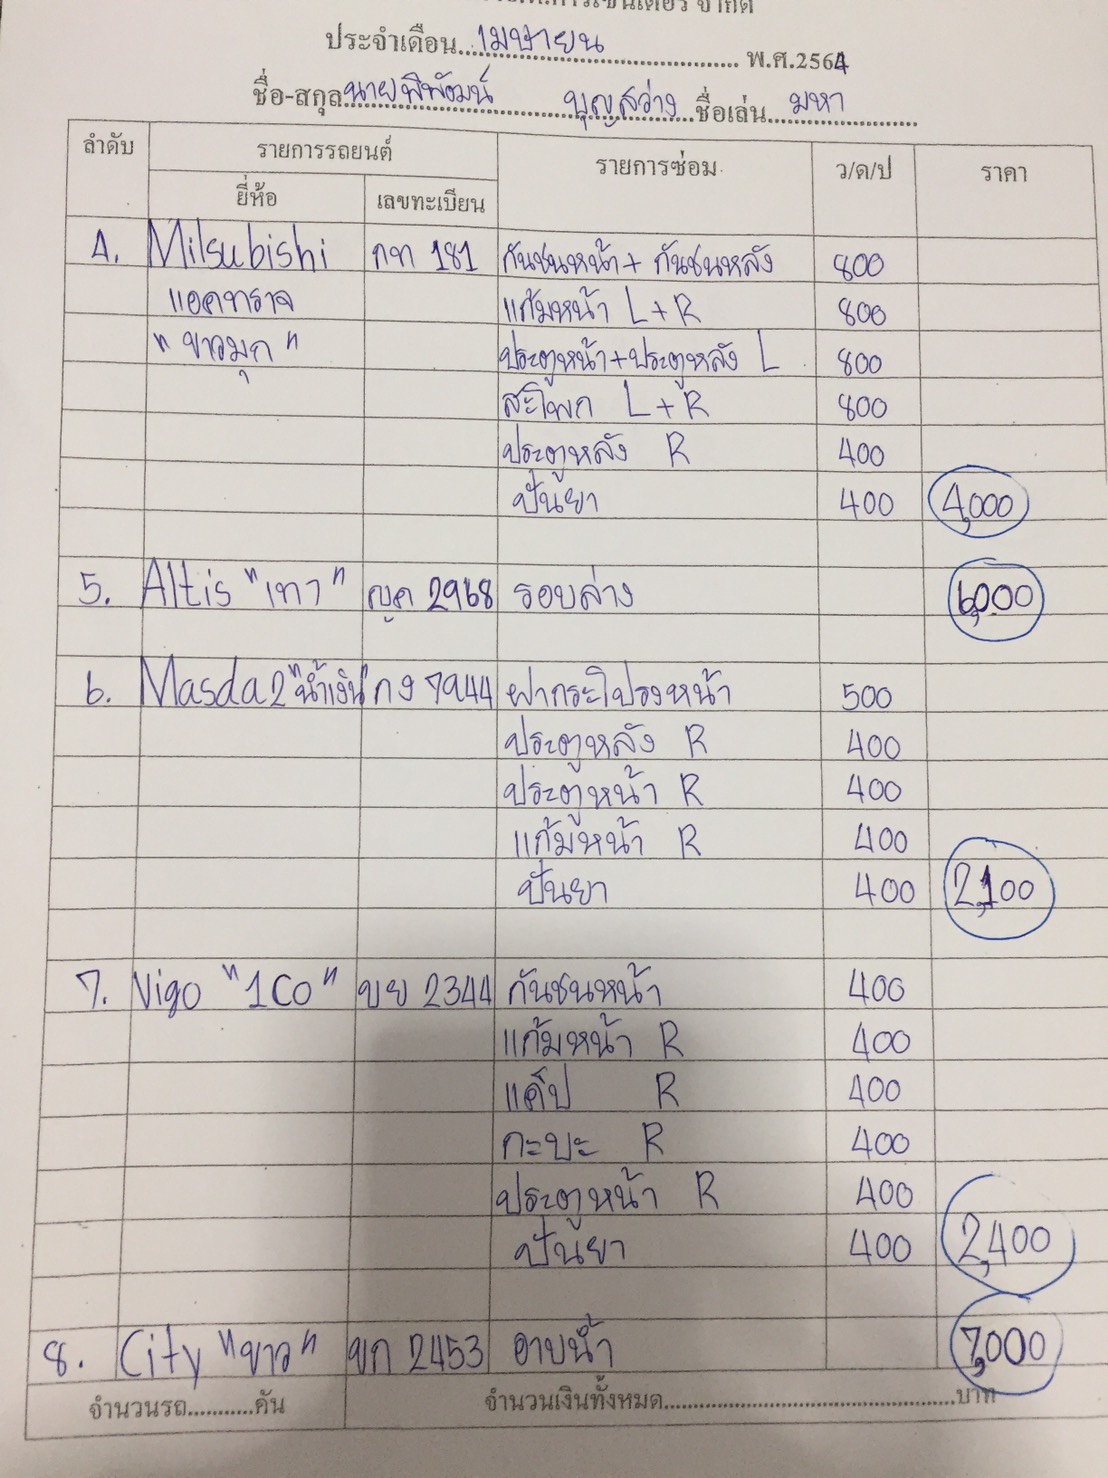 จำกัด
ประจำเดือน...เมษายน... พ.ศ.2564
ชื่อ-สกุล นายพิพัฒน์ บุญสว่าง ชื่อเล่น มหา
ลำดับ รายการรถยนต์ รายการซ่อม ว/ด/ป ราคา
ยี่ห้อ เลขทะเบียน
4. Milsubishi กท 181 กันชนหน้า + กันชนหลัง 800
แอคทราจ แก้มหน้า L+R 800
"ขาวมุก" ประตูหน้า+ประตูหลัง L 800
สะโพก L+R 800
ประตูหลัง R 400
ปั่นยา 400 4,000
5. Altis "เทา" ญค 2968 รอบล่าง 6,000
6. Masda2 "น้ำเงิน" กง 7944 ฝากระโปรงหน้า 500
ประตูหลัง R 400
ประตูหน้า R 400
แก้มหน้า R 400
ปั่นยา 400 2,100
7. Vigo "1C0" ขย 2344 กันชนหน้า 400
แก้มหน้า R 400
แค๊ป R 400
กะบะ R 400
ประตูหน้า R 400
ปั่นยา 400 2,400
8. City "ขาว" ขก 2453 อาบน้ำ 7,000
จำนวนรถ...........คัน จำนวนเงินทั้งหมด..................................................บาท